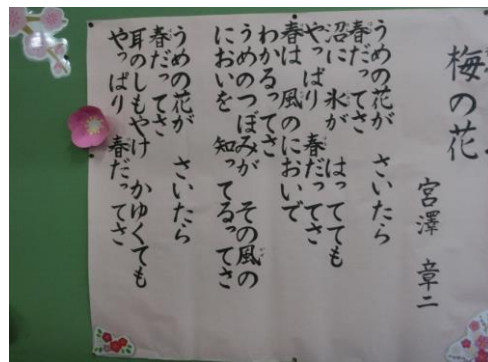 梅の花
宮澤 章二
うめの花が さいたら
春だってさ
沼に 氷が はってても
やっぱり 春だってさ
春は 風のにおいで
わかるってさ
うめのつぼみが その風の
においを 知ってるってさ
うめの花が さいたら
春だってさ
耳のしもやけ かゆくても
やっぱり 春だってさ